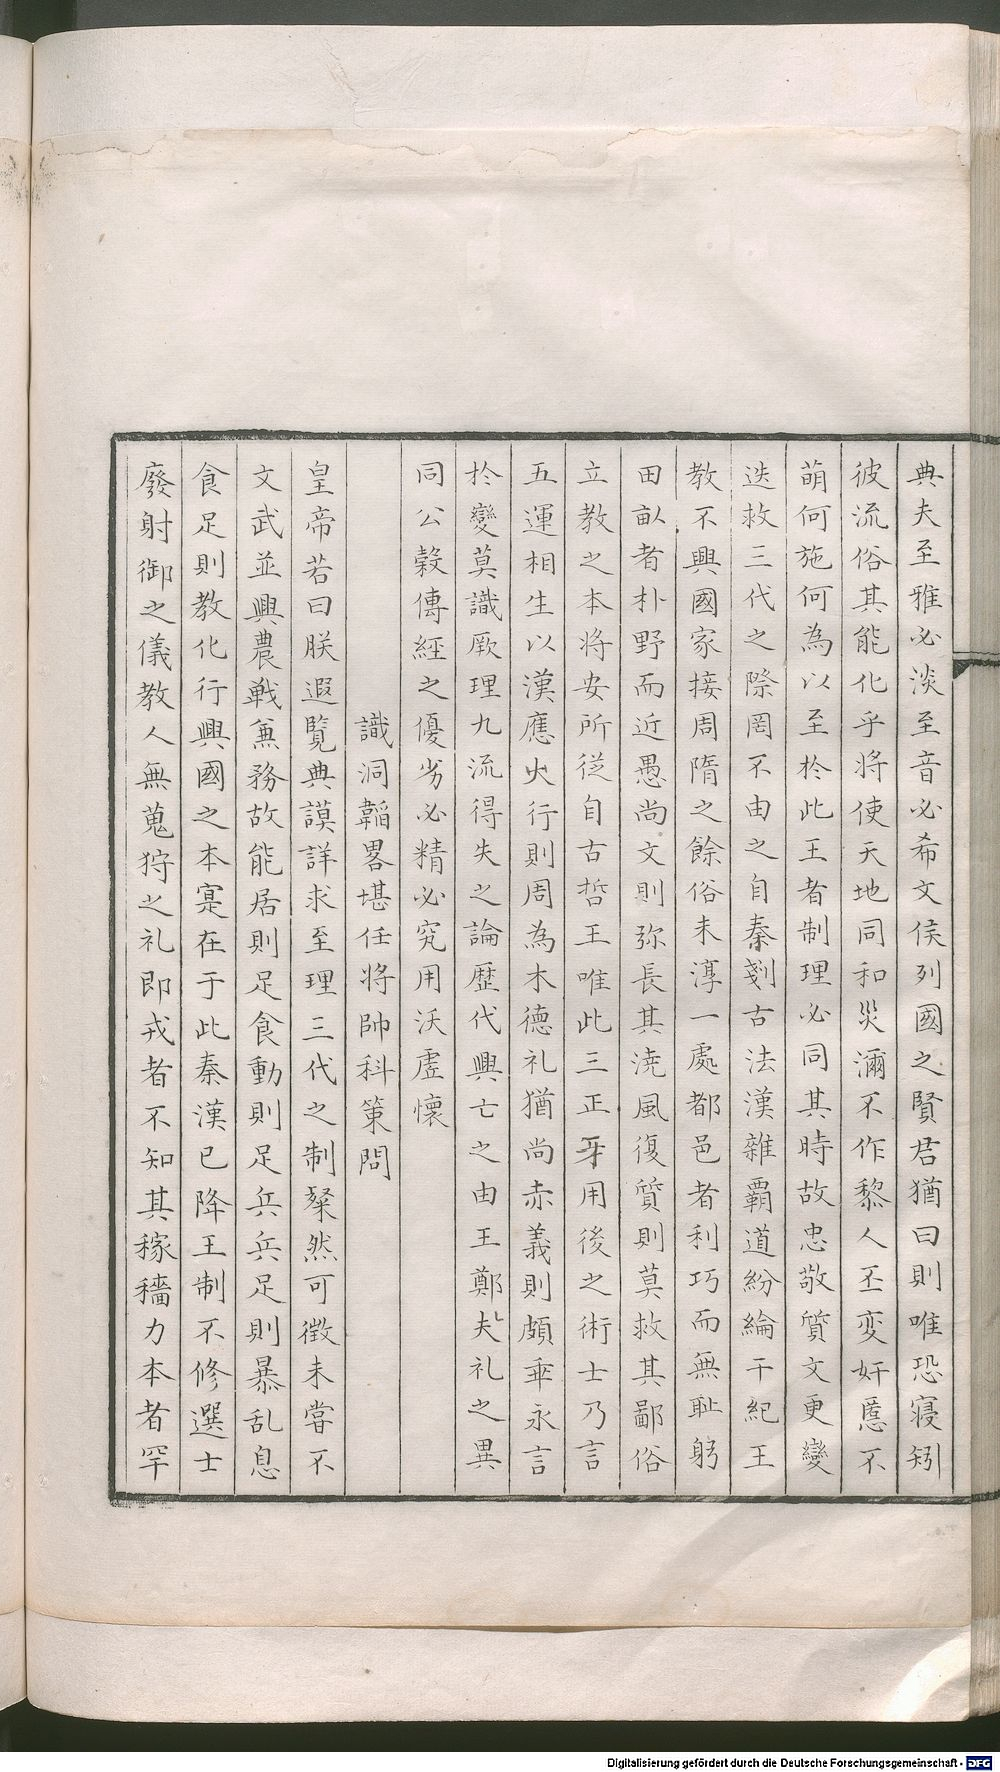 典夫至雅必淡至音必希文侯列國之賢君猶曰則唯恐寝矧
彼流俗其能化乎将使天地同和災濔不作黎人丕変奸慝不
萌何施何為以至於此王者制理必同其時故忠敬質文更變
迭救三代之際罔不由之自秦剗古法漢雜覇道紛綸千紀王
教不興國家接周隋之餘俗未淳一處都邑者利巧而無耻躬
田畝者朴野而近愚尚文則弥長其澆風復質則莫救其鄙俗
立教之本将安所従自古哲王唯此三正牙用後之術士乃言
五運相生以漢應火行則周為木德礼猶尚赤義則頗乖永言
於變莫識厥理九流得失之論歷代興亡之由王鄭夫礼之異
同公穀傳經之優劣必精必究用沃虚懷
識洞韜畧堪任将帥科策問
皇帝若曰朕遐覽典謨詳求至理三代之制粲然可徴未嘗不
文武並興農戦兼務故能居則足食動則足兵兵足則暴乱息
食足則教化行興國之本寔在于此秦漢已降王制不修選士
廢射御之儀教人無蒐狩之礼即戎者不知其稼穡力本者罕
Digitalisierung gefördert durch die Deutsche Forschungsgemeinschaft - DFG